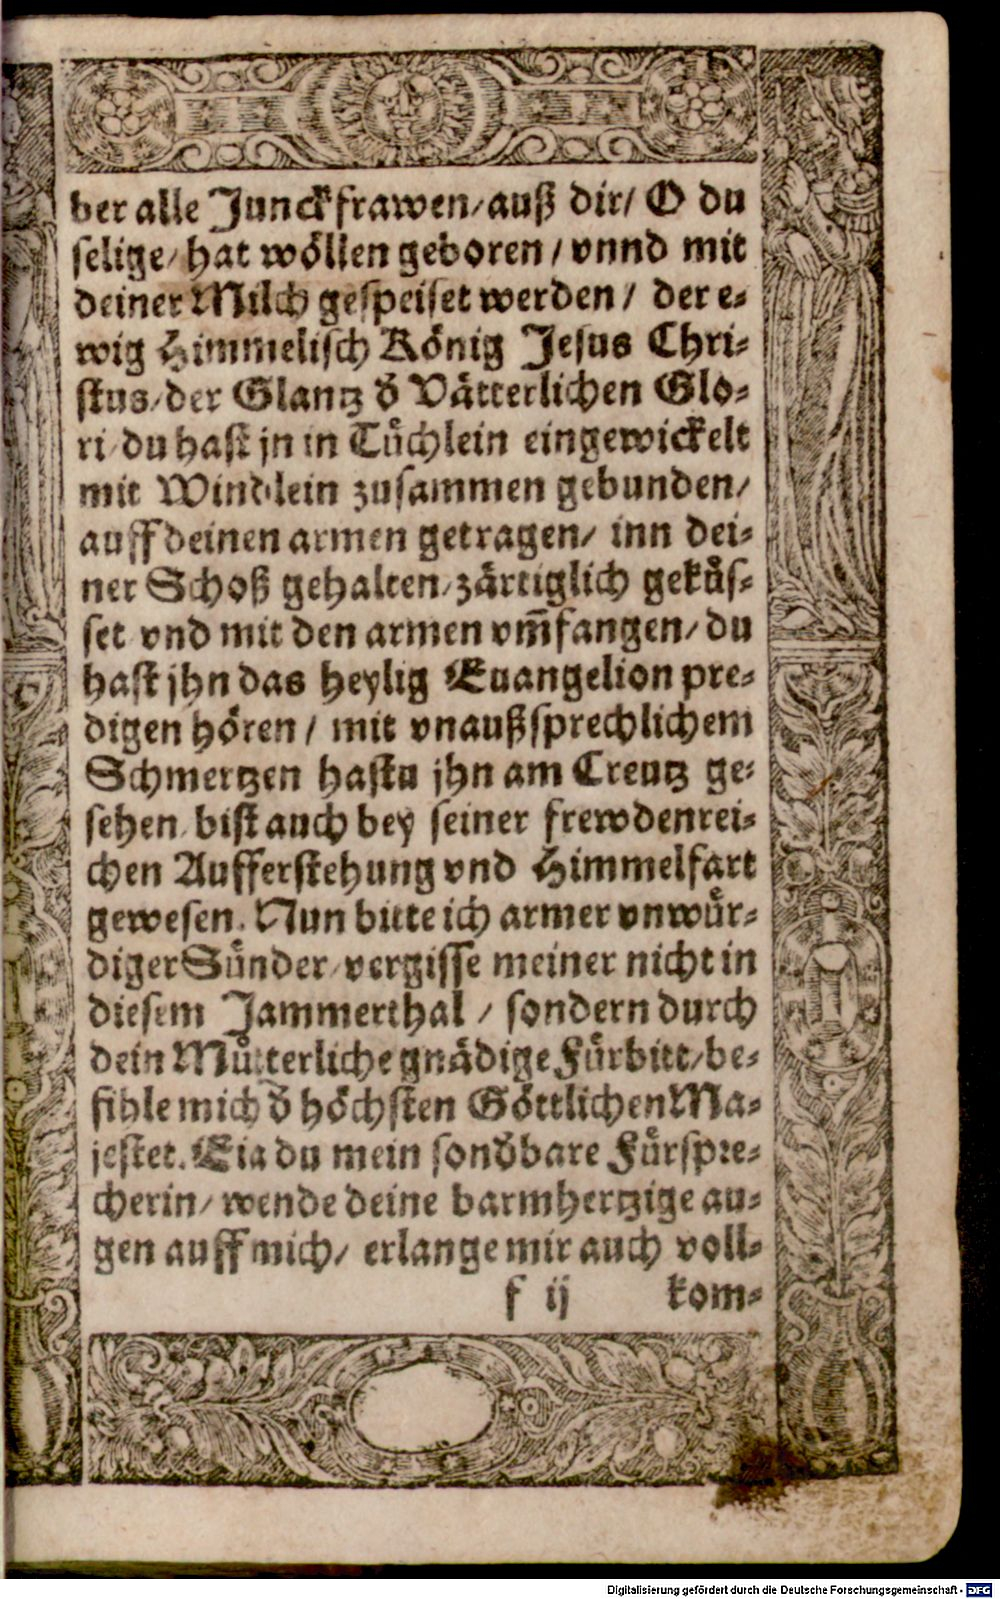 ber alle Junckfrawen/ auß dir/ O du
selige/ hat wöllen geboren / vnnd mit
deiner Milch gespeiset werden / der e⸗
wig Himmelisch König Jesus Chri⸗
stus/ der Glantz ď Vätterlichen Glo⸗
ri/ du hast jn in Tüchlein eingewickelt
mit Windlein zusammen gebunden/
auff deinen armen getragen/ inn dei⸗
ner Schoß gehalten/ zärtiglich geküs⸗
set vnd mit den armen vm̄fangen/ du
hast jhn das heylig Euangelion pre⸗
digen hören / mit vnaußsprechlichem
Schmertzen hastu jhn am Creutz ge⸗
sehen/ bist auch bey seiner frewdenrei⸗
chen Aufferstehung vnd Himmelfart
gewesen. Nun bitte ich armer vnwür⸗
diger Sünder/ vergisse meiner nicht in
diesem Jammerthal / sondern durch
dein Mütterliche gnädige Fürbitt/ be⸗
fihle mich ď höchsten Göttlichen Ma⸗
jestet. Eia du mein sonďbare Fürspre⸗
cherin/ wende deine barmhertzige au⸗
gen auff mich/ erlange mir auch voll⸗
f ij kom⸗
Digitalisierung gefördert durch die Deutsche Forschungsgemeinschaft - DFG